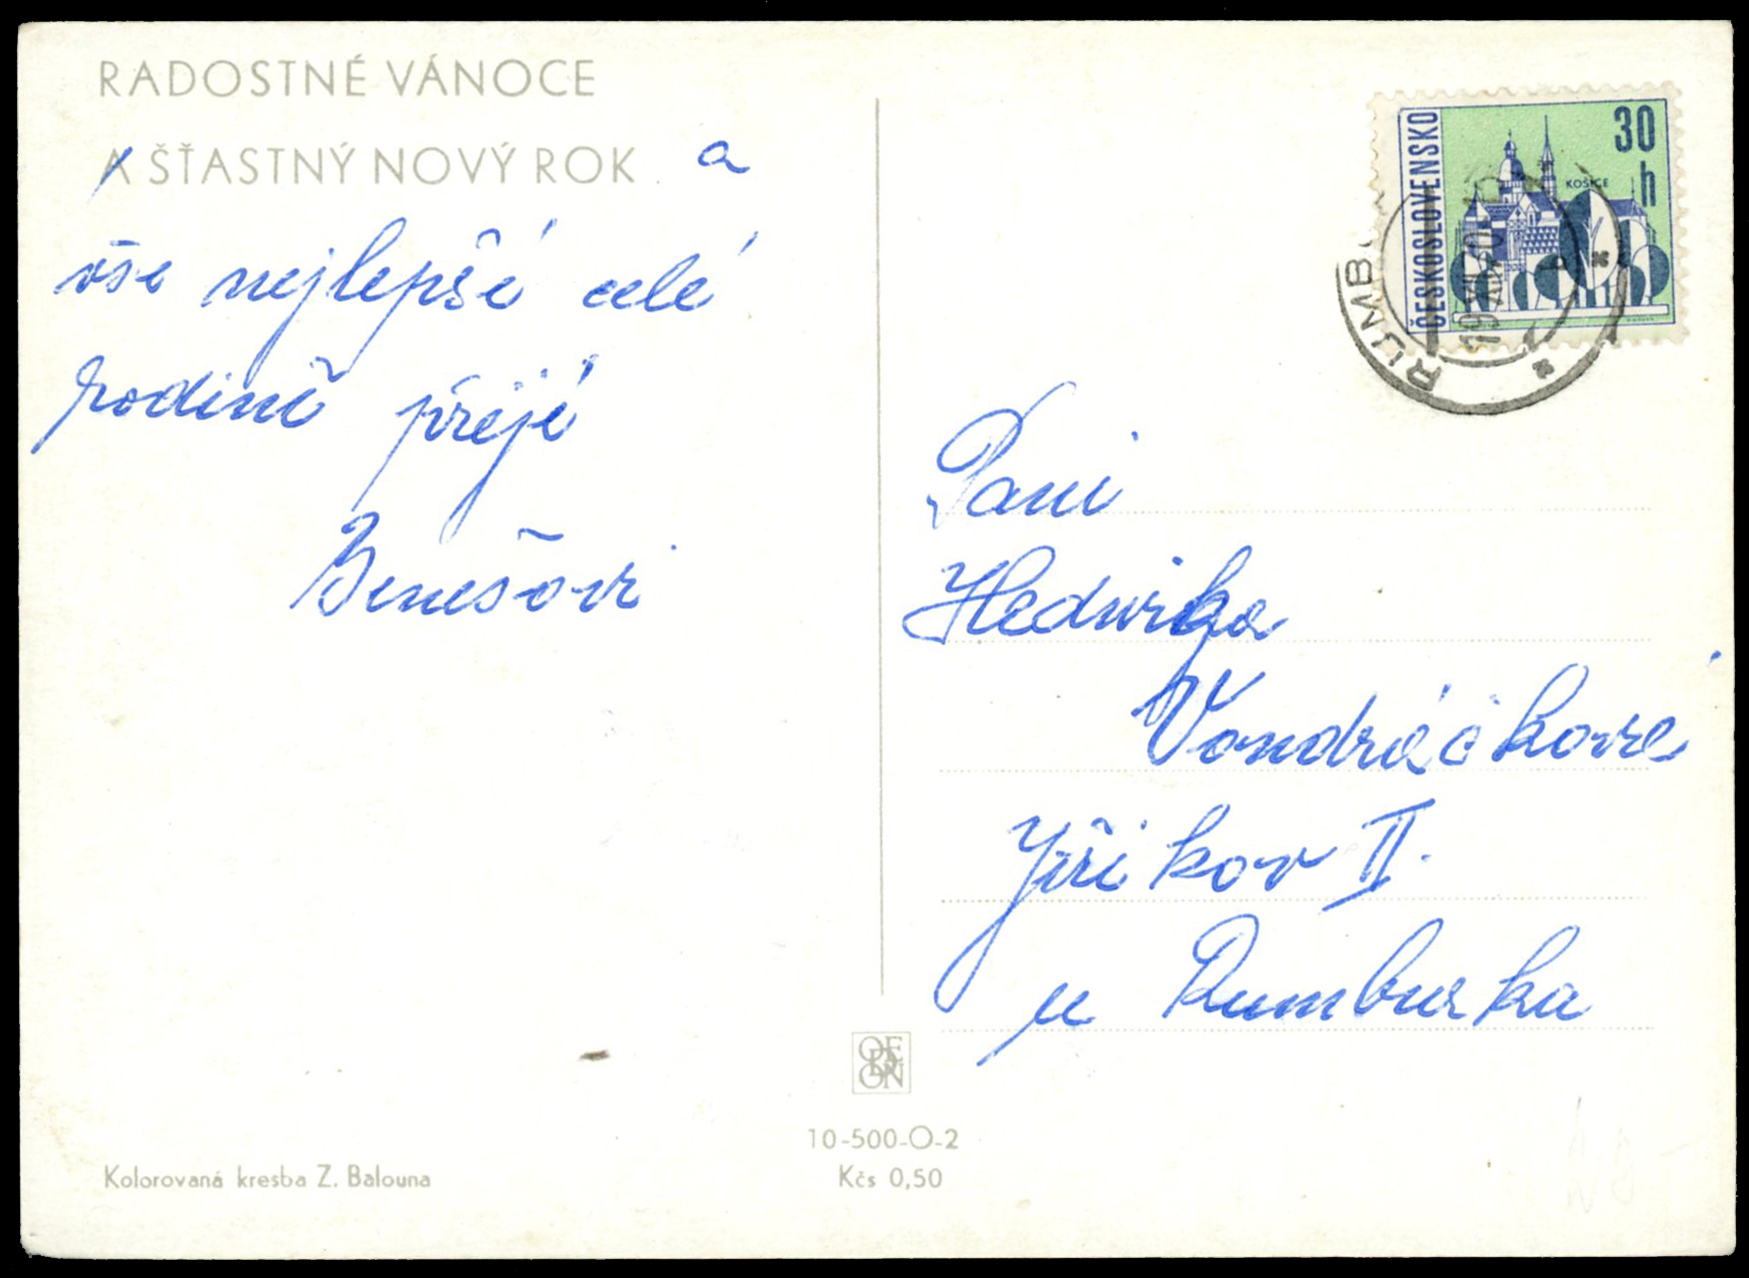 RADOSTNÉ VÁNOCE
A ŠŤASTNÝ NOVÝ ROK a
vše nejlepšé celé
rodině přejé
Benešovi
ČESKOSLOVENSKO
30
h
KOŠICE
RUMB
Paní
Hedvika
Vondráčková
Jiříkov II.
u Rumburka
OE
D
ON
10-500-O-2
Kčs 0,50
Kolorovaná kresba Z. Balouna